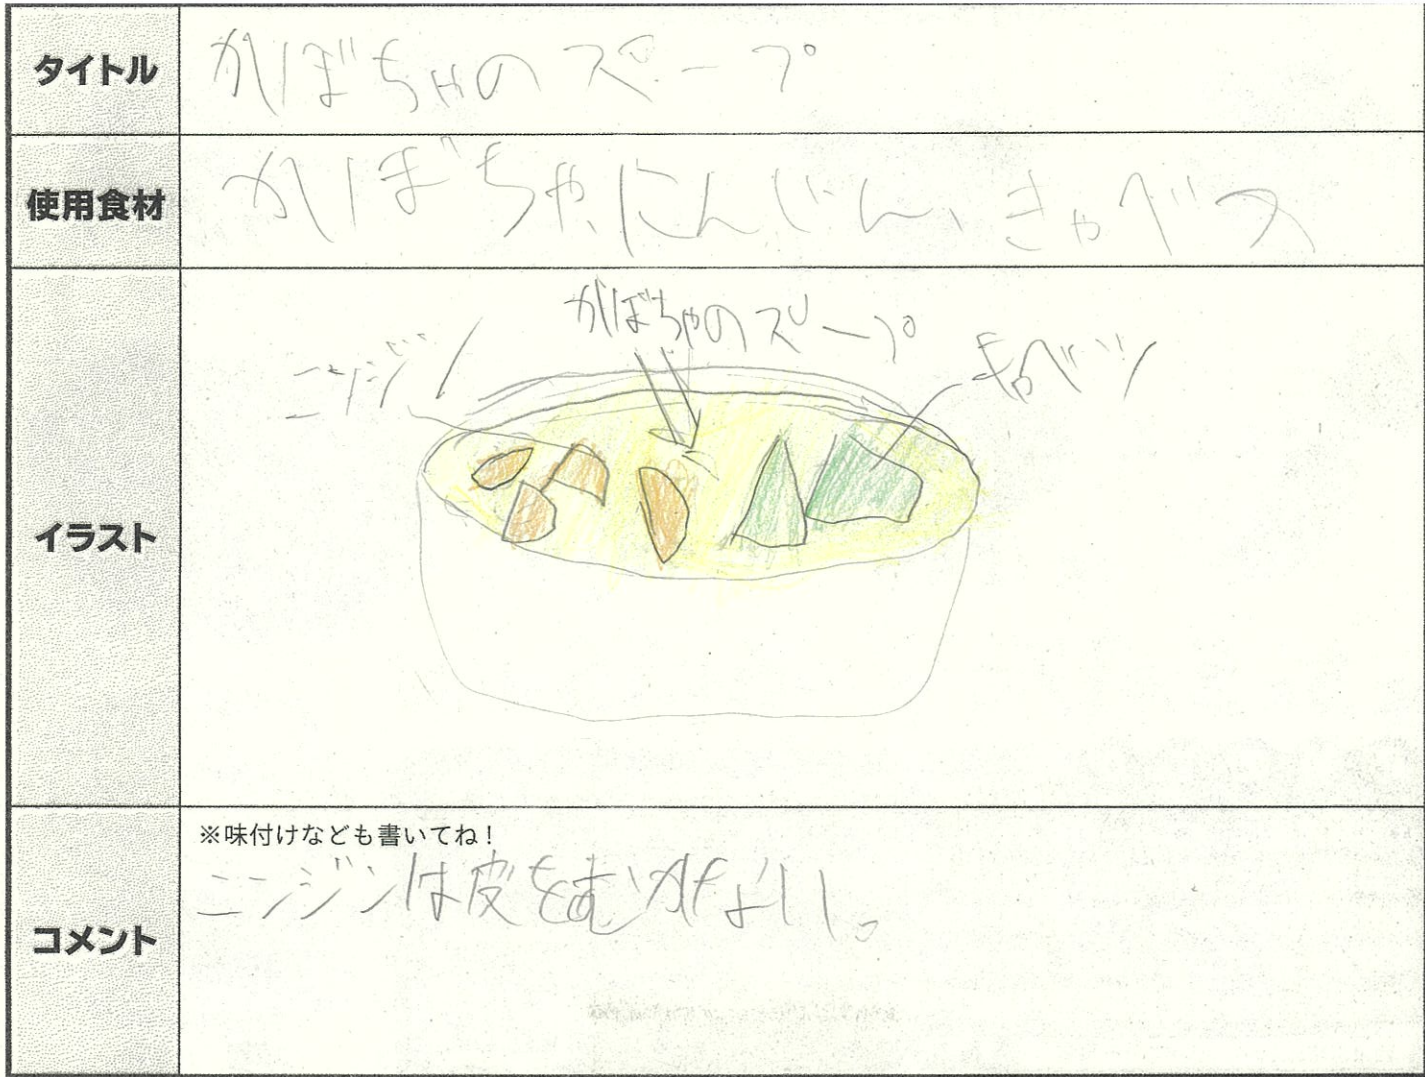 タイトル
かぼちゃのスープ
使用食材
かぼちゃ、にんじん、きゃべつ
イラスト
かぼちゃのスープ
ニンジン
キャベツ
コメント
※味付けなども書いてね！
ニンジンは皮をむかない。